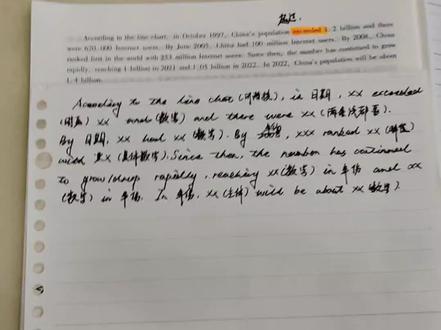 超过
According to the line chart, in October 1997, China's population exceeded 1. 2 billion and there
were 620, 000 Internet users. By June 2005, China had 100 million Internet users. By 2008, China
ranked first in the world with 253 million Internet users. Since then, the number has continued to grow
rapidly, reaching 1 billion in 2021 and 1. 05 billion in 2022. In 2022, China's population will be about
1. 4 billion
According to the line chart(), in 日期, xx exceeded
() xx and (数字) and there were xx ().
By 日期, xx had xx (数字). By , xxx ranked xx ()
with xx (具体数字). Since then, the number has continued
to grow/drop rapidly, reaching xx (数字) in 年份 and xx
(数字) in 年份. In 年份, xx (主体) will be about xx (数字).